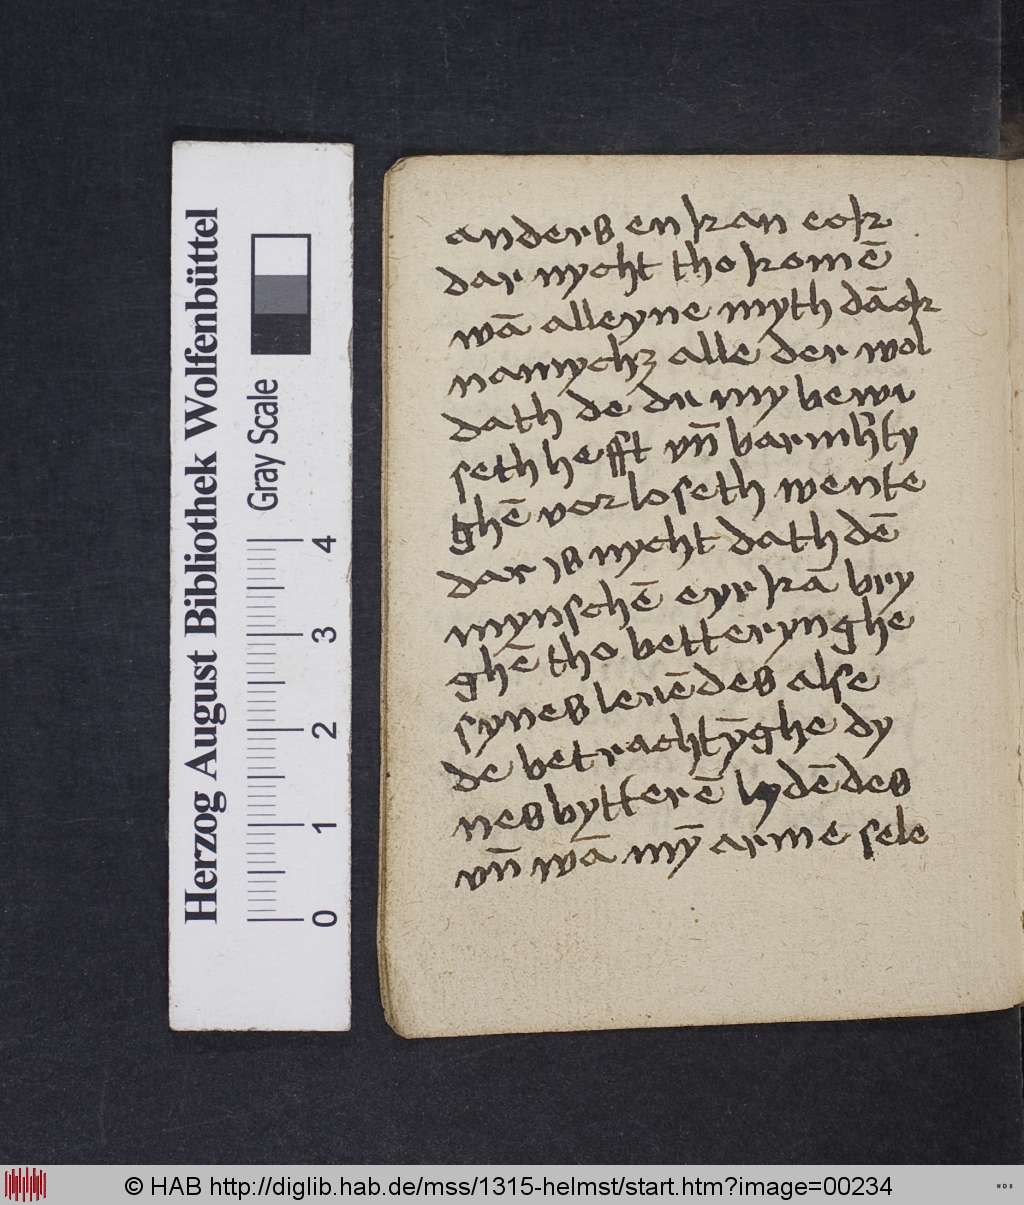 anders en kan eok
dar nycht tho komē
wā alleyne myth dāck
namychʒ alle der wol
dath de du my bewi
seth hefft vn̄ barmh'ty
ghē vorloseth wente
dar is nycht dath dē
mynschē eyr kā bry
ghē tho betterynghe
synes leuēdes alse
de betrachtȳghe dy
nes bytterē lydēdes
vn̄ wā mȳ arme sele
Herzog August Bibliothek Wolfenbüttel
Gray Scale
0 1 2 3 4
© HAB http://diglib.hab.de/mss/1315-helmst/start.htm?image=00234